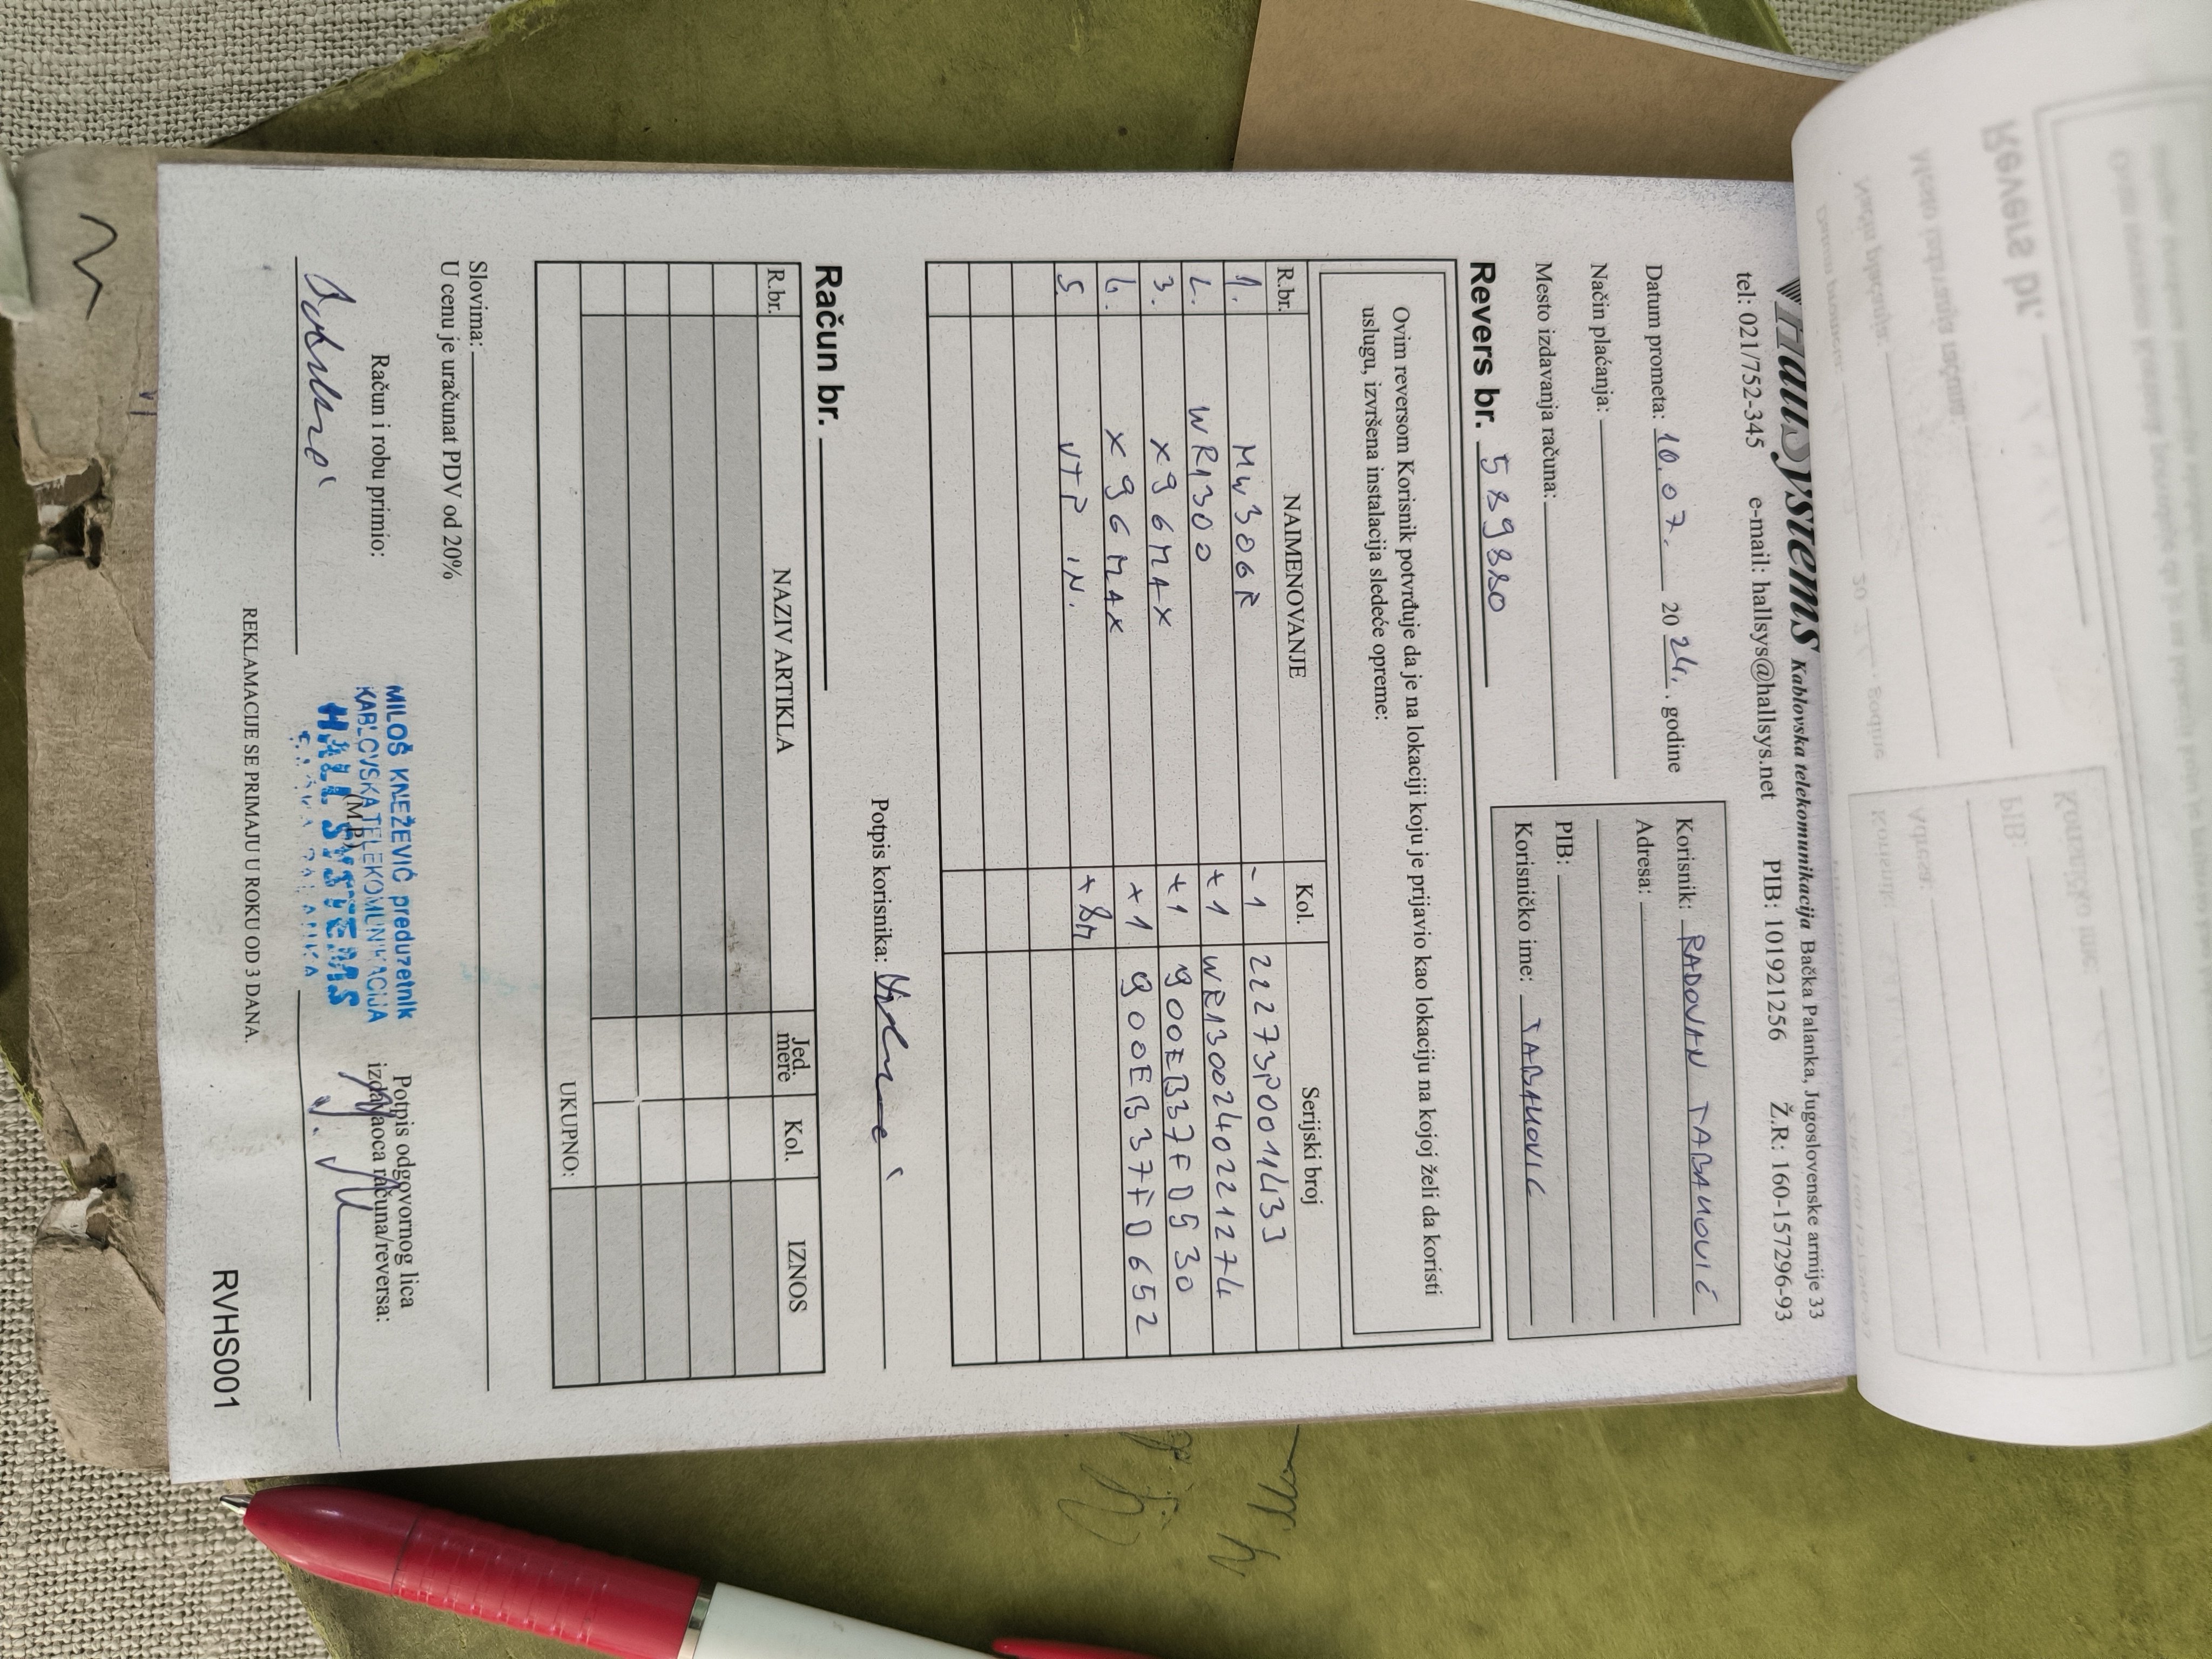 HallSystems Kablovska telekomunikacija Bačka Palanka, Jugoslovenske armije 33
tel: 021/752-345 e-mail: hallsys@hallsys.net PIB: 101921256 Ž.R: 160-157296-93
Datum prometa: 10.07. 2024. godine
Način plaćanja:
Mesto izdavanja računa:
Korisnik: RADOVAN TABAKOVIĆ
Adresa:
PIB:
Korisničko ime: TABAKOVIC
Revers br. 589880
Ovim reversom Korisnik potvrđuje da je na lokaciji koju je prijavio kao lokaciju na kojoj želi da koristi
uslugu, izvršena instalacija sledeće opreme:
R.br. NAIMENOVANJE Kol. Serijski broj
1. MW306R -1 22273P0011433
2. WR1300 +1 WR1300240221274
3. X96MAX +1 900EB37FD530
4. X96MAX +1 900EB37FD652
5. UTP IN. +8M
Potpis korisnika:
Račun br.
R.br. NAZIV ARTIKLA Jed. mere Kol. IZNOS
UKUPNO:
Slovima:
U cenu je uračunat PDV od 20%
Račun i robu primio:
MILOŠ KNEŽEVIĆ preduzetnik
KABLOVSKA TELEKOMUNIKACIJA
(M.P.)
HALL SYSTEMS
Potpis odgovornog lica
izdavaoca računa/reversa:
REKLAMACIJE SE PRIMAJU U ROKU OD 3 DANA.
RVHS001